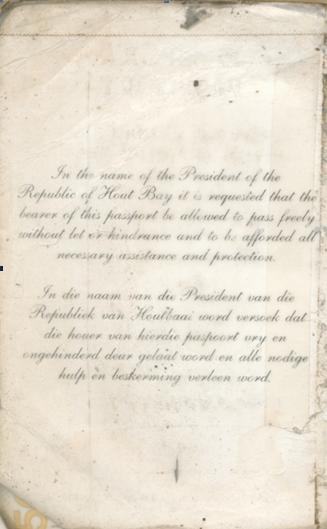 In the name of the President of the
Republic of Hout Bay it is requested that the
bearer of this passport be allowed to pass freely
without let or hindrance and to be afforded all
necessary assistance and protection.
In die naam van die President van die
Republiek van Houtbaai word versoek dat
die houer van hierdie paspoort vry en
ongehinderd deur gelaat word en alle nodige
hulp en beskerming verleen word.